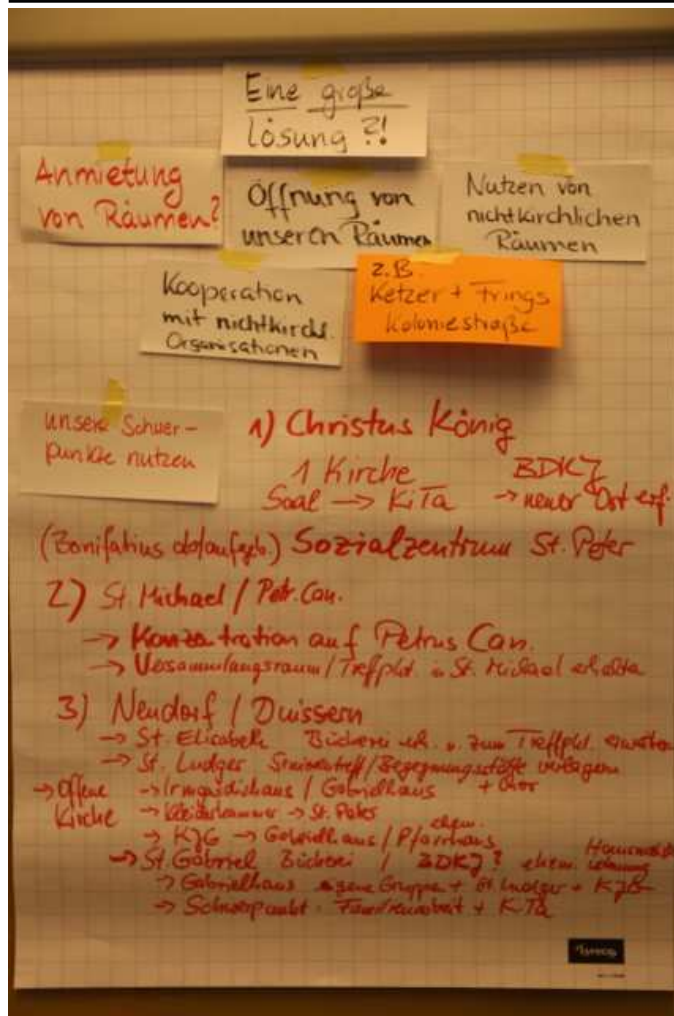 Eine große
Lösung ?!
Anmietung
von Räumen?
Öffnung von
unseren Räumen
Nutzen von
nichtkirchlichen
Räumen
Kooperation
mit nichtkirchl.
Organisationen
z.B.
Ketzer + Frings
Koloniestraße
unsere Schwer-
punkte nutzen
1) Christus König
1 Kirche
Saal → KiTa
BDKJ
→ neuer Ort erf.
(Bonifatius Sozialzentrum St. Peter
2) St. Michael / Petr. Can.
→ Konzentration auf Petrus Can.
→ Versammlungsraum / Treffpkt. in St. Michael
3) Neudorf / Duissern
→ St. Elisabeth Bücherei zum Treffpkt.
→ St. Ludger Seniorentreff / Begegnungsstätte verlagern
→ Offene
Kirche
→ Irmgardishaus / Gabrielhaus + Chor
→ Kleiderkammer → St. Peter
→ KJG → Gabrielhaus / ehem. Pfarrhaus
→ St. Gabriel Bücherei / BDKJ? ehem.
→ Gabrielhaus eigene Gruppe + St. Ludger + KJG
→ Schwerpunkt: Familienarbeit + KiTa